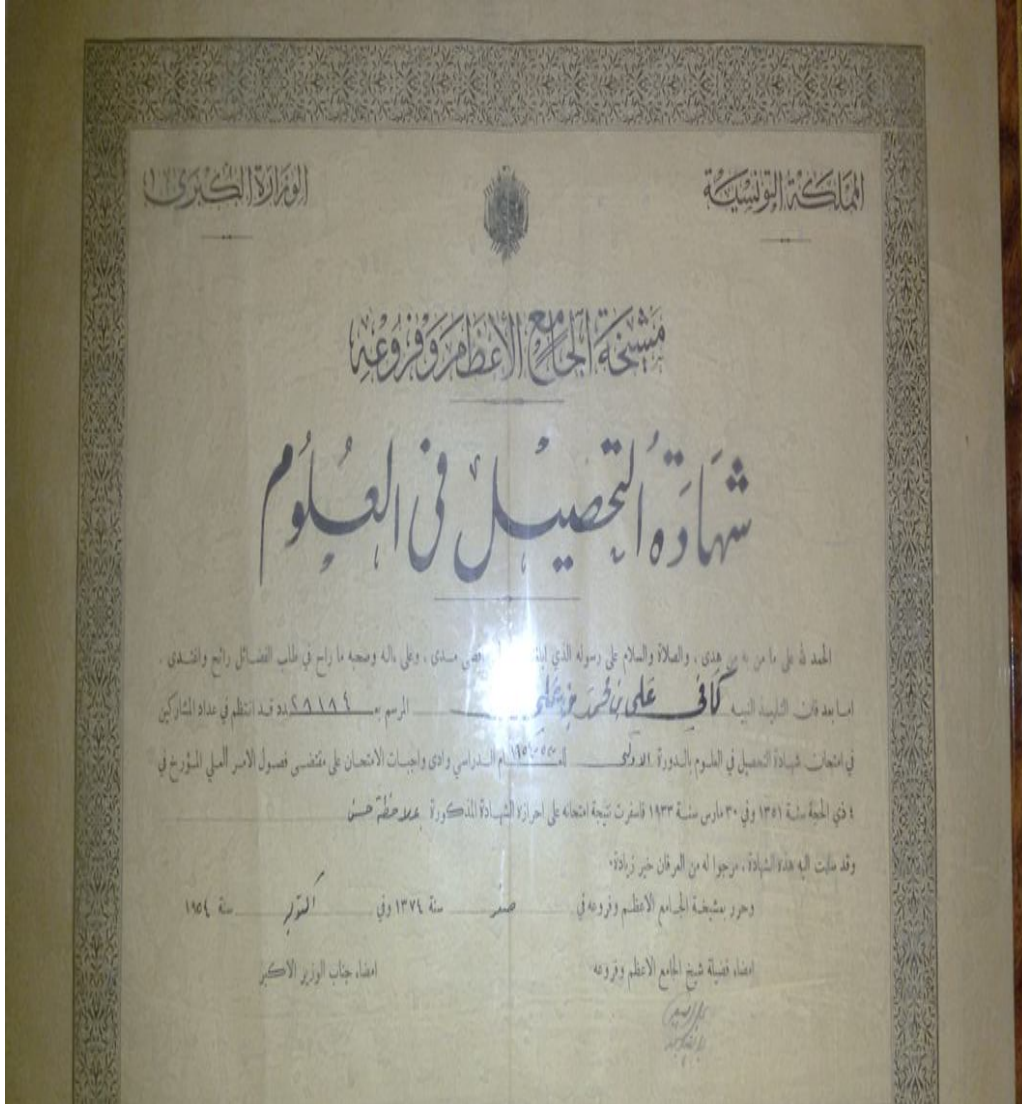 المملكة التونسية
الوزارة الكبرى
مشيخة الجامع الأعظم وفروعه
شهادة التحصيل في العلوم
الحمد لله على ما من به من هدى ، والصلاة والسلام على رسوله الذي مدى ، وعلى ءاله وصحبه ما راح في طلب الفضائل رائح واغتدى .
اما بعد فان التلميذ النبيه كافي علي بن محمد بن علي المرسم بعـدد ٢٨١٨٤ قد انتظم في عداد المشاركين
في امتحان شهادة التحصيل في العلوم بالدورة الاولى للعـام الدراسي وادى واجبات الامتحان على مقتضى فصول الامر العلي المؤرخ في
٤ ذي الحجة سنة ١٣٥١ وفي ٣٠ مارس سنة ١٩٣٣ فاسفرت نتيجة امتحانه على احرازه الشهادة المذكورة بملاحظة حسن
وقد سلمت اليه هذه الشهادة ، مرجوا له من العرفان خير زيادة .
وحرر بمشيخة الجامع الاعظم وفروعه في صفر سنة ١٣٧٤ وفي اكتوبر سنة ١٩٥٤
امضاء فضيلة شيخ الجامع الاعظم وفروعه
امضاء جناب الوزير الاكبر